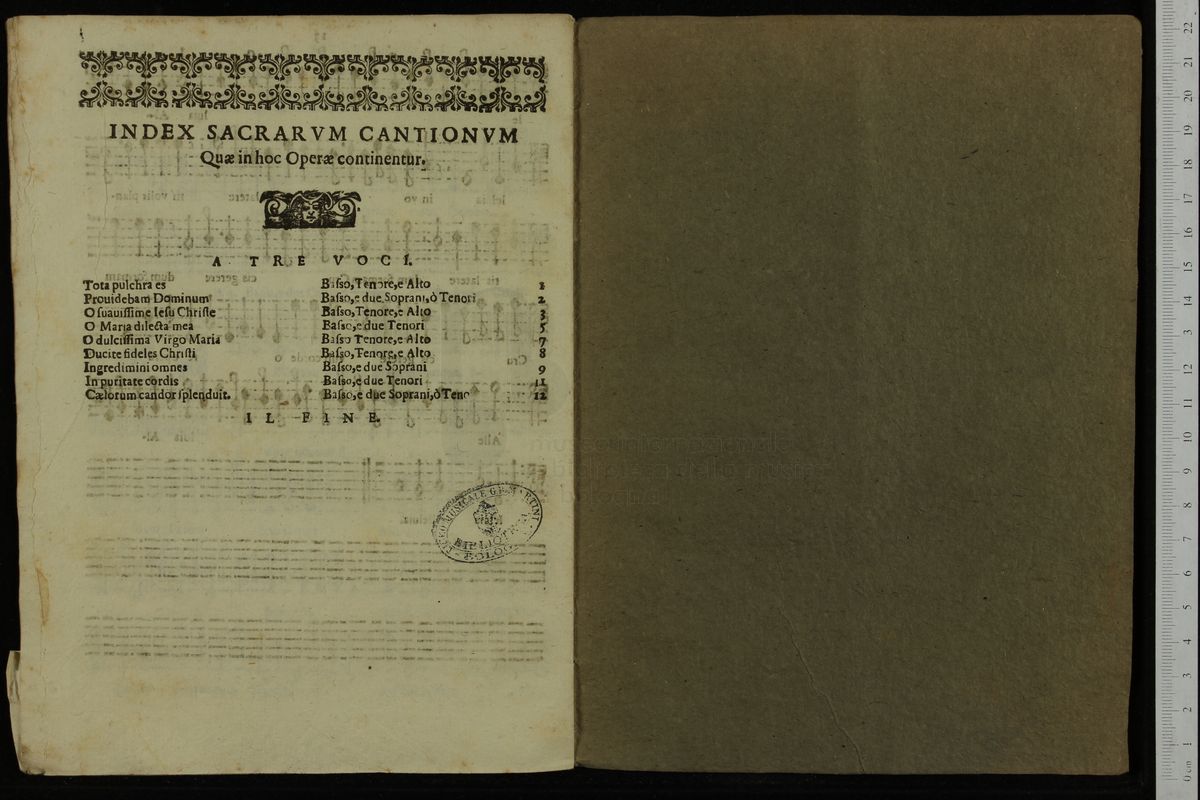 INDEX SACRARVM CANTIONVM
Quæ in hoc Operæ continentur.
A TRE VOCI.
Tota pulchra es Basso, Tenore, e Alto 1
Prouidebam Dominum Basso, e due Soprani, ò Tenori 2
O suauissime Iesu Christe Basso, Tenore, e Alto 3
O Maria dilecta mea Basso, e due Tenori 5
O dulcissima Virgo Maria Basso Tenore, e Alto 7
Ducite fideles Christi Basso, Tenore, e Alto 8
Ingredimini omnes Basso, e due Soprani 9
In puritate cordis Basso, e due Tenori 11
Cælorum candor splenduit. Basso, e due Soprani, ò Teno 12
IL FINE.
LICEO MUSICALE G.B. MARTINI
museo internazionale